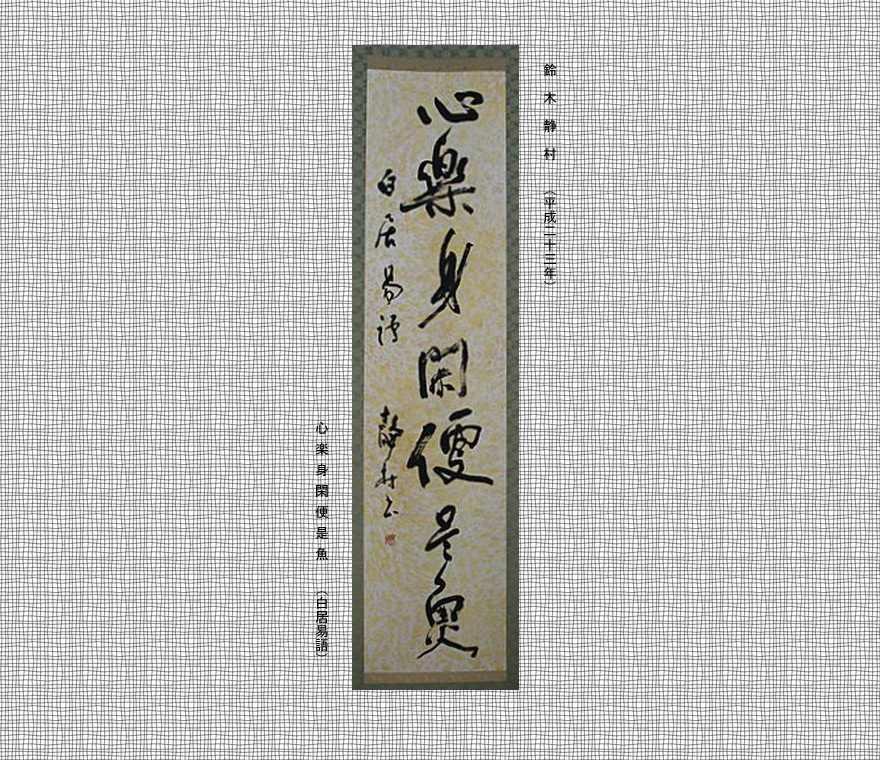 鈴木静村 （平成二十三年）
心楽身閑便是魚
白居易語 静村書
心楽身閑便是魚 （白居易語）